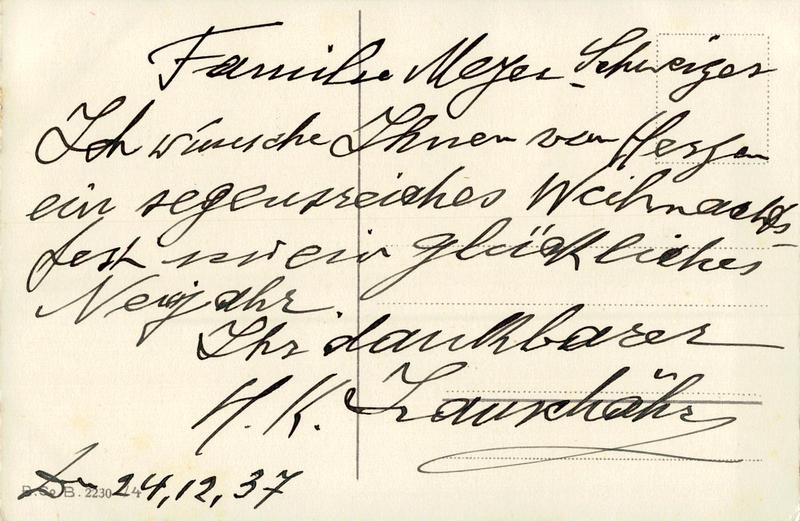 Familie Meyer-Schweizer
Ich wünsche Ihnen von Herzen
ein segensreiches Weihnachts-
fest und ein glückliches
Neujahr.
Ihr dankbarer
H. K.
Den 24,12,37
B. Co B. 2230